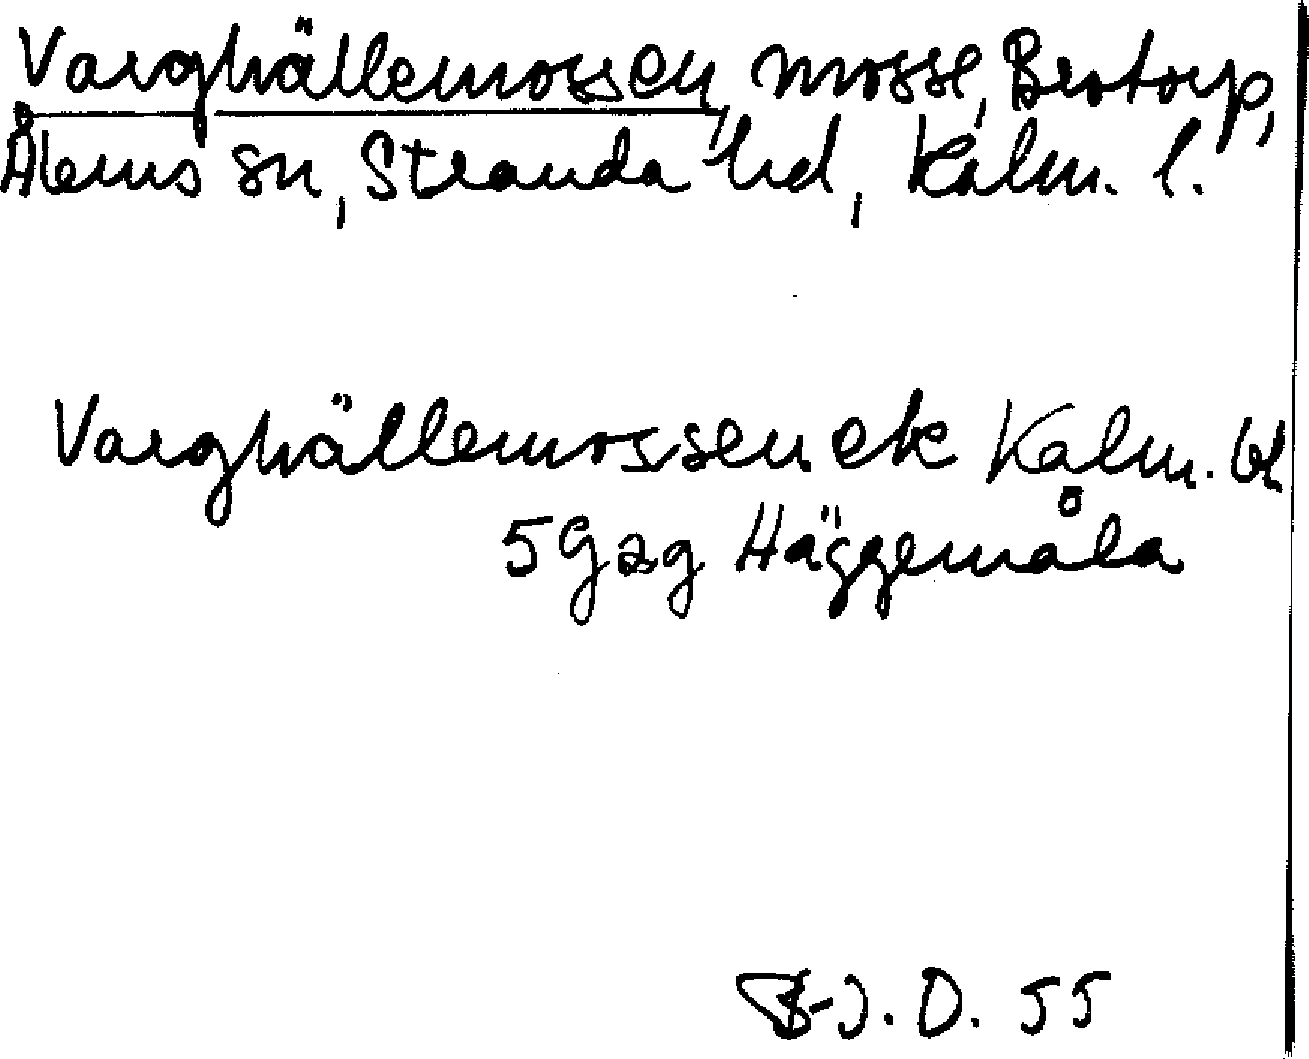 Varghällemossen, mosse, Brotorp,
Ålems sn, Stranda hd, Kalm. l.
Varghällemossen ek Kalm. bl
5G2g Häggemåla
B-J. O. 55